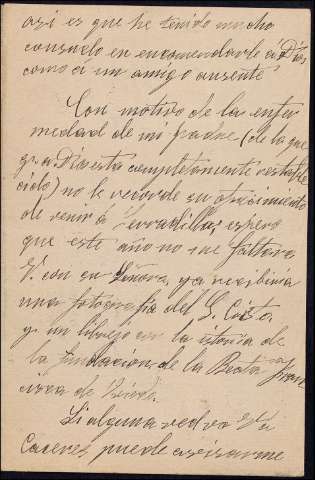 asi es que he tenido mucho
consuelo en encomendarle á Dios,
como á un amigo ausente
Con motivo de la enfer
medad de mi padre (de la que
g. a. Dios esta completamente restable
cido) no le recordé su ofrecimiento
de venir á Serradilla; espero
que este año no me faltara
V. con su Señora, ya recibiria
una fotografia del S. Cristo
y un librejo con la istoria de
la fundacion de la Beata Fran
cisca de
Si alguna vez va V. á
Caceres puede avisarme